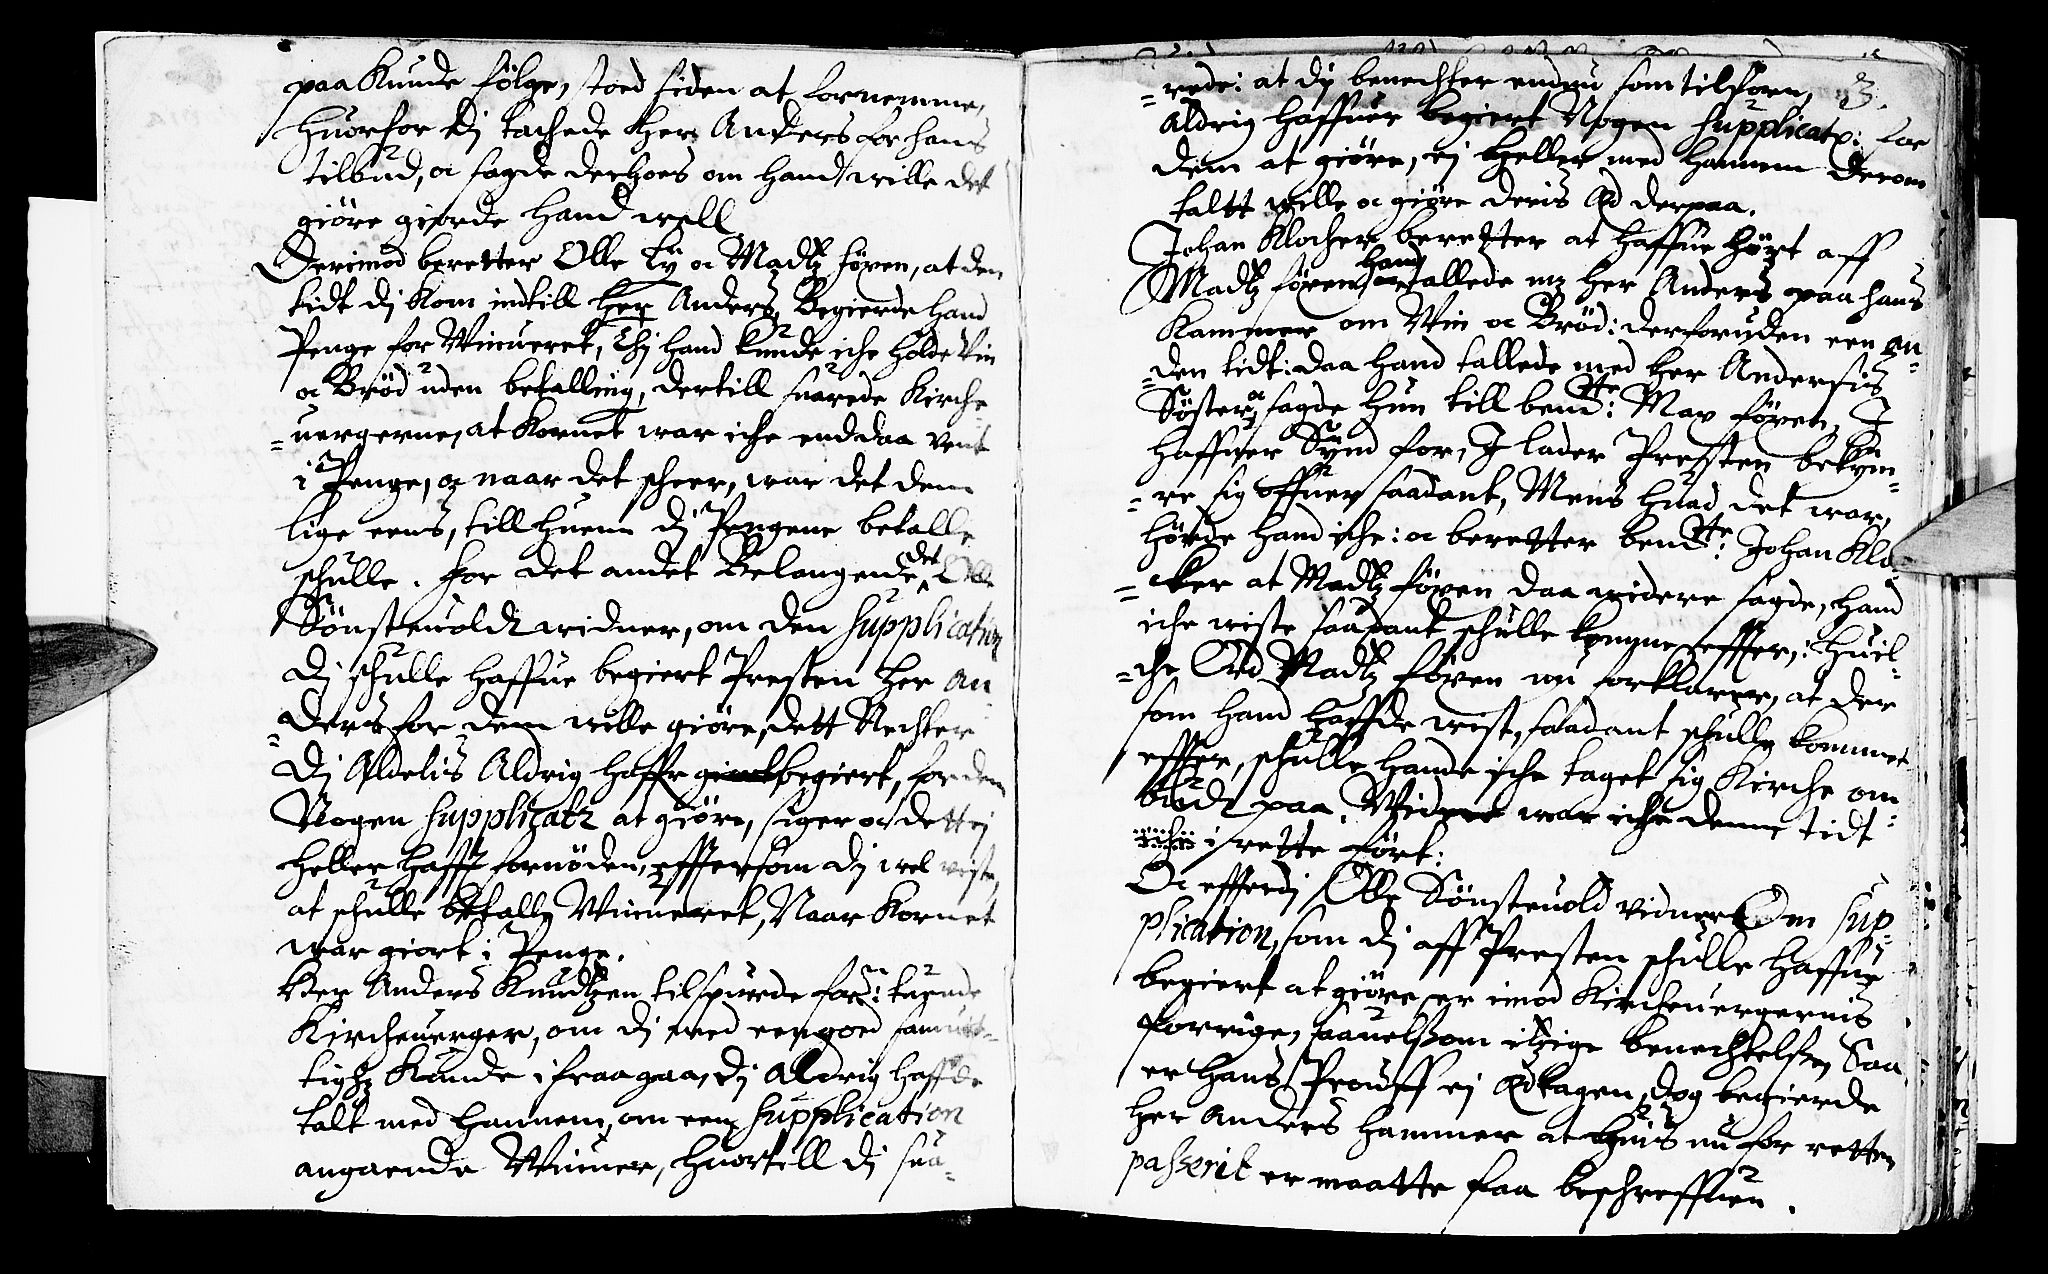 paa Kunde følge, stoed siden at fornemme,
huorfor dj tachede Her Anders for hans
tilbud, oc sagde derhoes om hand wille det
giöre giorde hand well
Derimod beretter Olle Lÿ oc Madtz Föyen, at den
tidt dj kom indtill Her Anders, Begierde hand
Penge for Wiinueret, Thj hand kunde iche holde Vin
oc Bröd uden betalling, dertill suarede Kirche
=uergerne, at Kornet war iche end daa vent
i Penge, og naar det scheer, war det dem
lige eens, till huem dj Pengene betalle
schulle. For det andet Belangende det Olle
Sönsteuoldt widner, om den Supplication
dj schulle haffue begiert Presten Her An
=ders for dem wille giöre, dett Nechter
dj Aldelis Aldrig haffr giort begiert, for dem
Nogen Supplicatz at giöre, siger oc dett ej
heller hafft fornöden, effttersom dj vel viste,
at schulle betalle Wiinueret, Naar Kornet
war giort i Penge.
Her Anders Knudtzen tilspurde forne: tuende
Kircheuerger, om dj med een goed samuit-
tighz Kunde ifraagaa, dj Aldrig haffde
talt med hannem, om een Supplication
angaende Wiinuer, huortill dj sua-
=rede: at dÿ benechter endnu som tilforn, 3.
Aldrig haffuer begiert Nogen Supplicatz: for
dem at giöre, ej heller med hannem derom
taltt wille oc giöre deris Æd derpaa.
Johan Klocher beretter at haffue hört aff
Madtz Föyen hand tallede mz Her Anders paa hans
Kammer om Vin oc Bröd: derforuden een an-
=den tidt: daa hand tallede med Her Andersis
Söster oc sagde hun till bendte: Max Föyen, I
haffuer Sÿnd for, I lader Presten bekÿm-
=re sig offuer saadant, Mens huad det war,
hörde hand iche: oc beretter bendte: Johan Klo-
=cker at Madtz Föyen daa widere sagde, hand
iche wiste saadant schulle komme effter,: huil-
=che Ord Madtz Föyen nu forklarer, at der
som hand haffde wist, saadant schulle komme
effter, schulle hand iche taget sig Kirche om-
budt paa. Widere war iche denne tidt
i rette fört:
Oc effterdj Olle Sönsteuold vidner Om Sup-
plication, som dj aff Presten schulle haffue
begiert at giöre, er imod Kircheuergernis
forrige, saauelsom itzige benechtelse, Saa
er hans Prouff ej Edtagen, dog begierde
Her Anders Hammer at huis nu for retten
passerit er maatte faa beschreffuen.